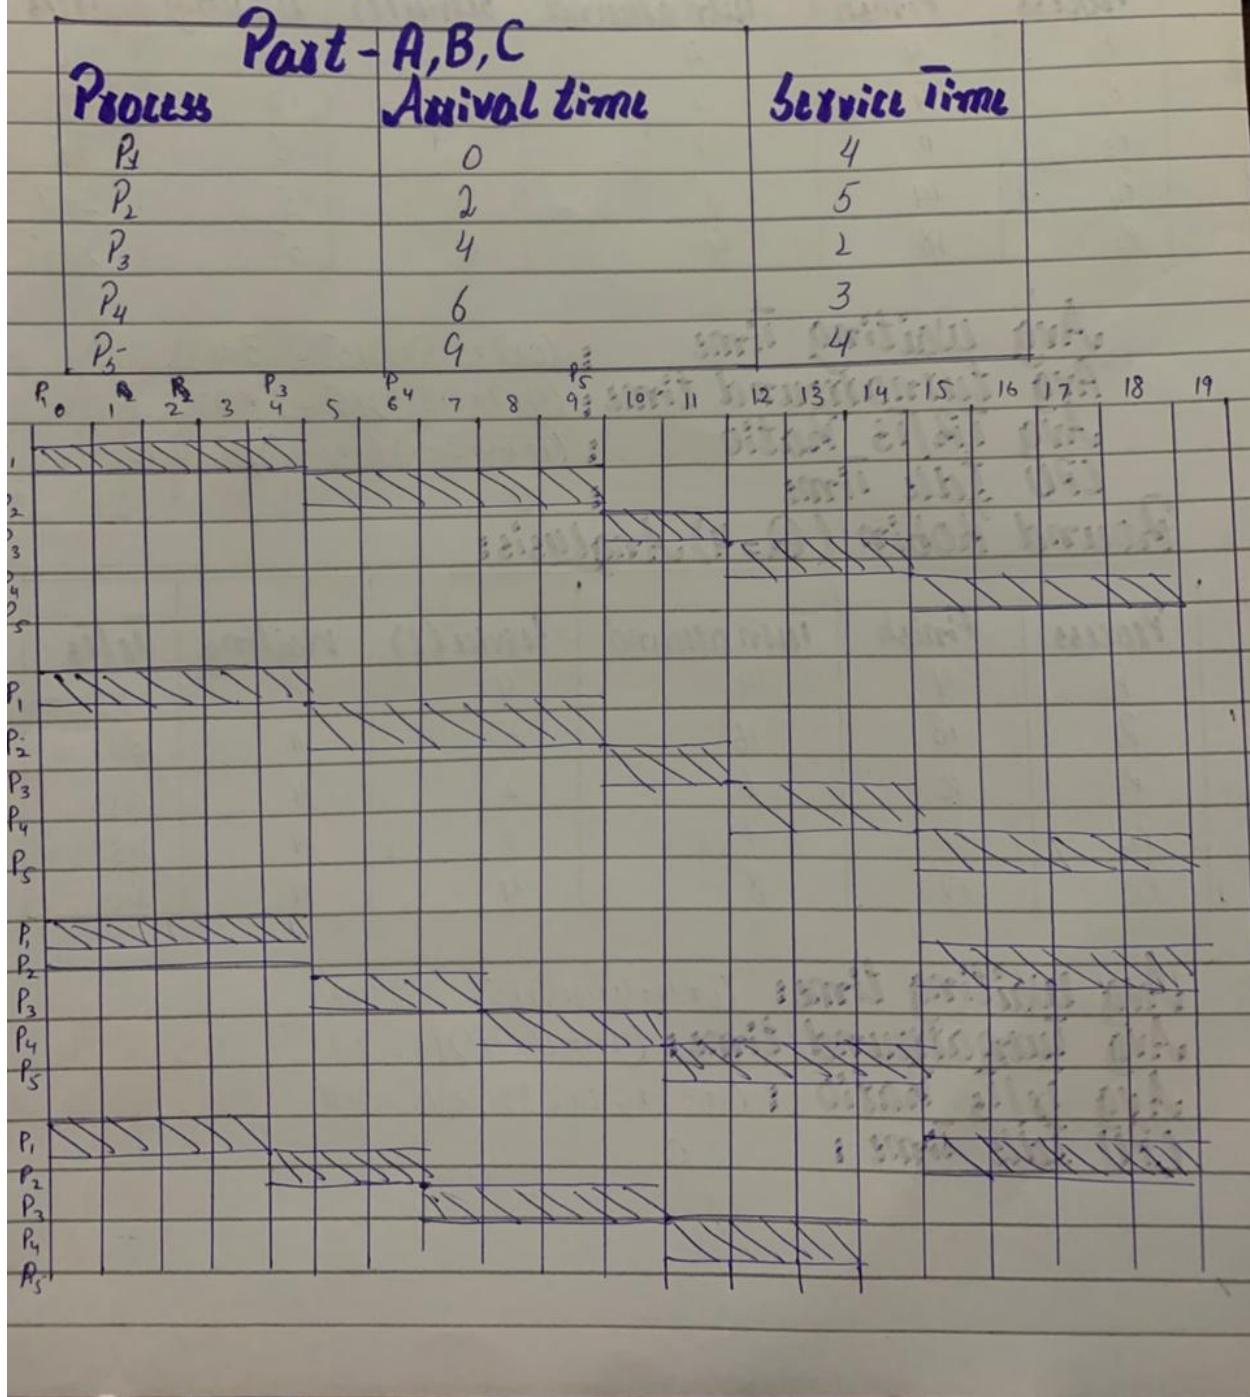 Part - A, B, C
Process Arrival time Service Time
P1 0 4
P2 2 5
P3 4 2
P4 6 3
P5 9 4
P1 P2 P3 P4 P5
0 1 2 3 4 5 6 7 8 9 10 11 12 13 14 15 16 17 18 19
1
2
3
4
5
P1
P2
P3
P4
P5
P1
P2
P3
P4
P5
P1
P2
P3
P4
P5